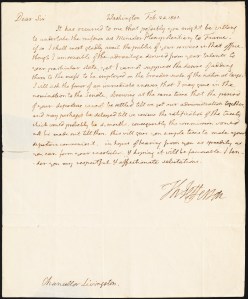 Dear Sir Washington Feb. 24. 1801.
It has occurred to me that possibly you might be willing
to undertake the mission as Minister Plenipotentiary to France.
if so I shall most gladly avail the public of your services in that office.
though I am sensible of the advantages derived from your talents to
your particular state, yet I cannot suppress the desire of adding
them to the mass to be employed on the broader scale of the nation at large.
I will ask the favor of an immediate answer that I may give in the
nomination to the Senate, observing at the same time that the period
of your departure can't be settled till we get our administration together,
and may perhaps be delayed till we receive the ratification of the treaty
which would probably be 4. months. consequently the commission would
not be made out till then. this will give you ample time to make your
departure convenient. in hopes of hearing from you as speedily as
you can form your resolution, & hoping it will be favorable, I ten-
der you my respectful & affectionate salutations.
Th: Jefferson
Chancellor Livingston.